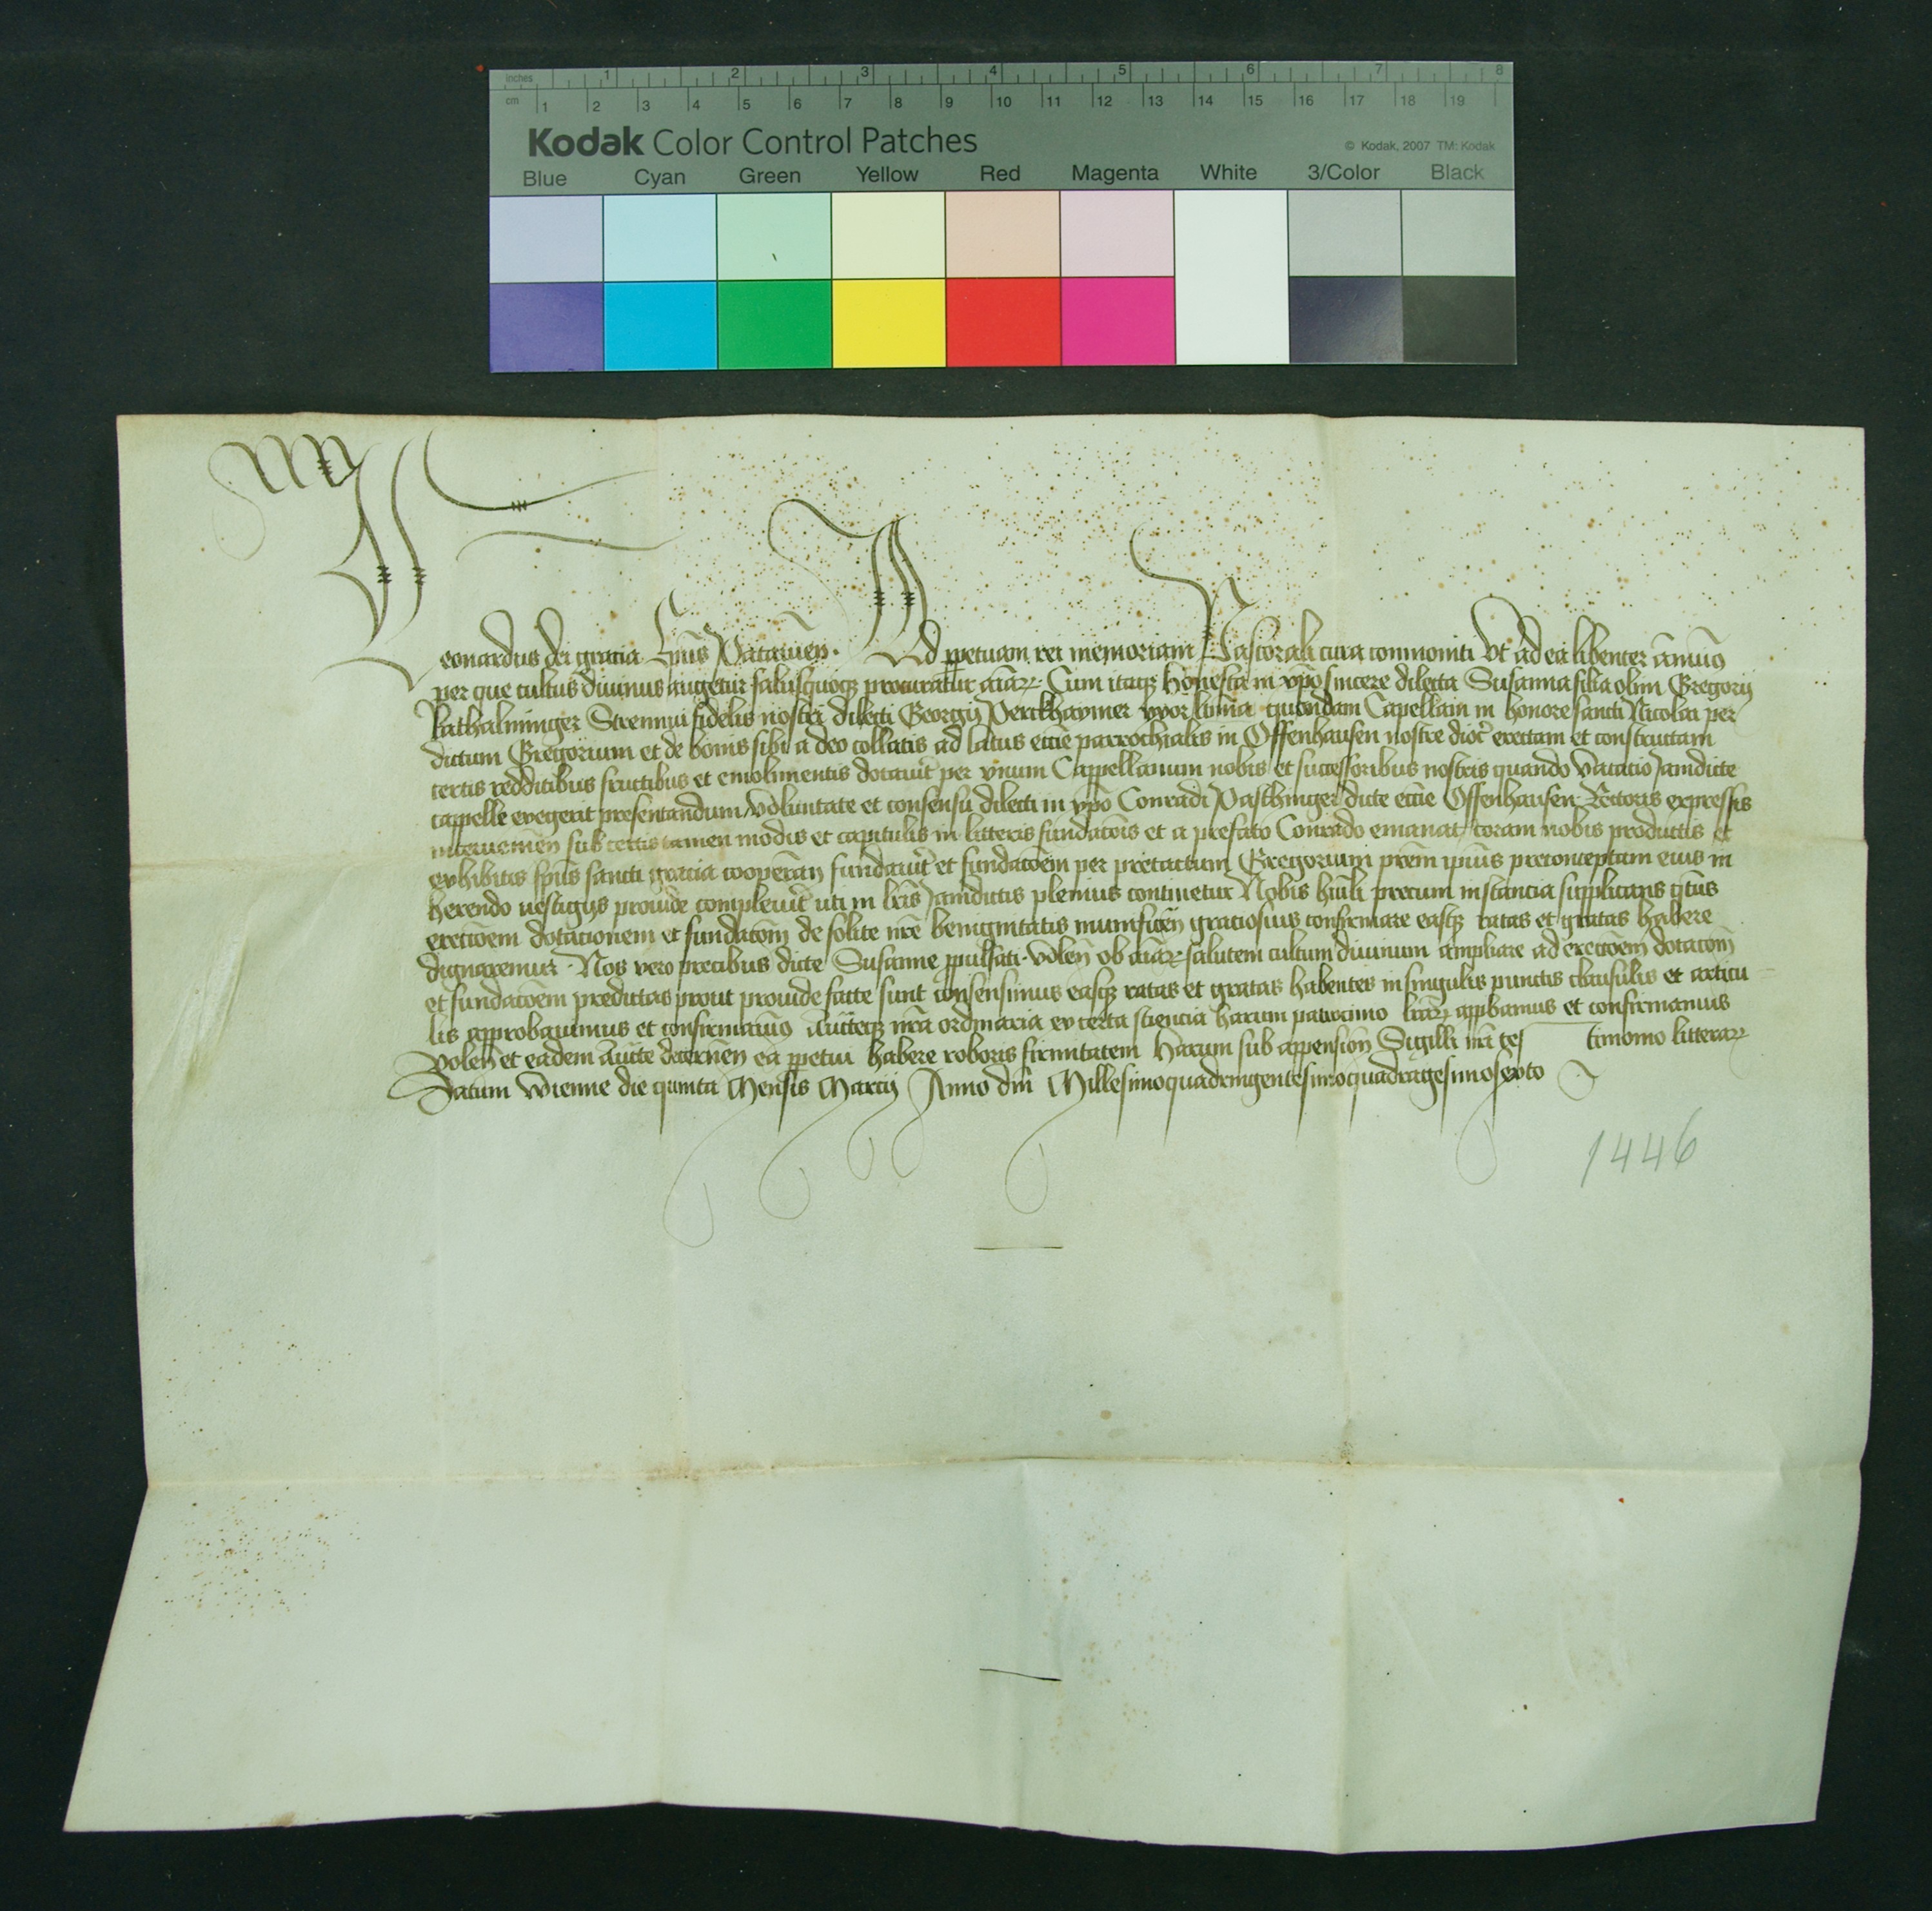 inches 1 2 3 4 5 6 7 8
cm 1 2 3 4 5 6 7 8 9 10 11 12 13 14 15 16 17 18 19
Kodak Color Control Patches © Kodak, 2007 TM: Kodak
Blue Cyan Green Yellow Red Magenta White 3/Color Black
Leonardus dei gracia Ep̄us Patauien̄. Ad ꝑpetuam rei memoriam Pastorali cura commoniti Vt ad ea libenter
per que cultus diuinus augetur salusquoqꝫ procuratur aīaꝝ. Cum itaqꝫ Honesta in xp̄o sincere dilecta Susanna filia olim Gregorij
Rathalminger Strennui fidelis nostri dilecti Georgij Perckhaymer vxor quondam Capellam in honore sancti Nicolai per
dictum Gregorium et de bonis sibi a deo collatis ad latus ecc̄ie parrochialis in Offenhausen nostre dioc̄ erectam et constructam
certis redditibus fructibus et emolimentis dotauit per vnum Cappellanum nobis et successoribus nostris quando vacatio Jamdicte
cappelle evegerit presentandum voluntate et consensu dilecti in xp̄o Conradi Paschinger dicte ecc̄ie Offenhausen Rectoris expressis
interuenien̄ sub certis tamen modis et capitulis in litteris fundac̄ois et a prefato Conrado emanat̄ coram nobis productis et
exhibitis sp̄us sancti gracia cooperan̄ fundauit et fundac̄oem per prefatum Gregorium pr̄em ip̄ius preconceptam eius in
herendo vestigijs prouide compleuit vti in lr̄is Jamdictis plenius continetur Nobis hūili precum instancia supplicans q̄tus
erecc̄oem dotacionem et fundac̄oem de solite nr̄e benignitatis munificen̄ graciosius confirmare easqꝫ ratas et gratas habere
dignaremur. Nos vero precibus dicte Susanne ꝓpulsati. volen̄ ob aīaꝝ salutem cultum diuinum ampliare ad erecc̄oem dotac̄oem
et fundac̄oem predictas prout prouide facte sunt consensimus easqꝫ ratas et gratas habentes in singulis punctis clausulis et articu
lis approbauimus et confirmauimꝰ auc̄teqꝫ nr̄a ordinaria ex certa sciencia harum patrocinio lr̄aꝝ appbamus et confirmamus
Volen̄ et eadem auc̄te decernen̄ ea ꝑpetui habere roboris firmitatem Harum sub appension̄ Sigilli nr̄i tes timonio litteraꝝ
Datum Wienne die quinta Mensis Marcij Anno dn̄i Millesimoquadringentesimoquadragesimosexto
1446